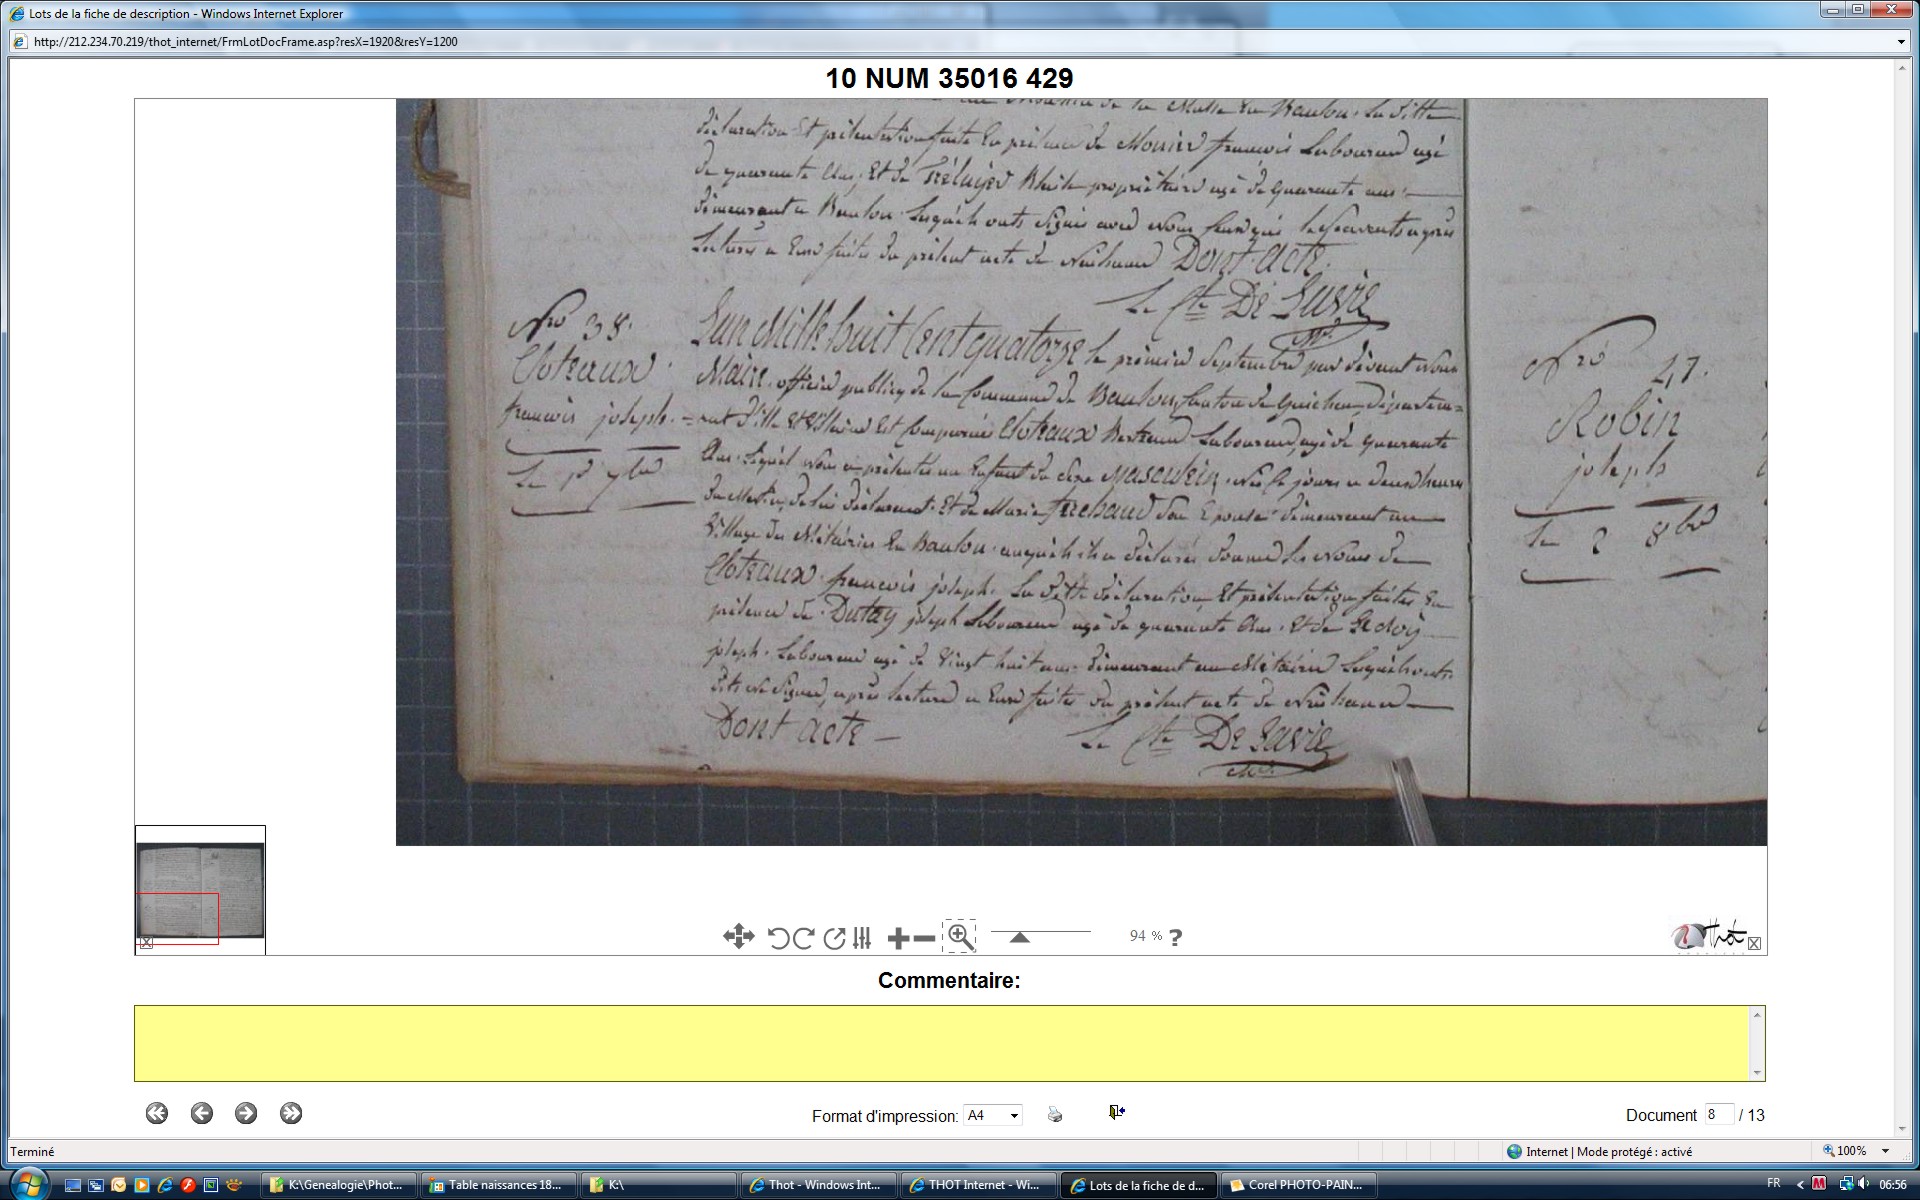 Lots de la fiche de description - Windows Internet Explorer
http://212.234.70.219/thot_internet/FrmLotDocFrame.asp?resX=1920&resY=1200
10 NUM 35016 429
de la Musse en Baulon. La ditte
déclaration Et présentation faite En présence de Monier francois Laboureur agé
de quarante Ans, Et de Trélluyer propriétaire agé de quarante ans
demeurant a Baulon Lesquels onts Signés avec Nous après
Lecture a Eux faites du présent acte de Naissance Dont Acte.
Le Cte De
Nro 38.
Cloteaux
francois joseph.
Le 1er 7bre
L'an Mille huit Cent quatorze le premier Septembre par devant Nous
Maire, officier publicq de la Commune de Baulon, Canton de Guichen, départem=
=ent d'Ille Et Vilaine Est Comparu Cloteaux Bertrand Laboureur, agé de quarante
Ans. Lequel Nous a présentés un Enfant du sexe Masculein, Née ce jours a deux heures
du Mattin, de lui déclarant. Et de Marie Son Epouse demeurant au
Village des Métairies En Baulon auquel il a déclarés donner les Noms de
Cloteaux francois joseph. La ditte déclaration, Et présentation faites En
présence de Dutay joseph Laboureur agé de quarante Ans. Et de
joseph. Laboureur agé de Vingt huit ans demeurant au Métairies Lesquels onts
dits ne Signer, après lecture a Eux faites du présent acte de Naissance
Dont Acte
Le Cte De
Nro 47.
Robin
joseph
Le 2 8bre
94 % ?
Thot
Commentaire:
Format d'impression: A4
Document 8 / 13
Terminé
Internet | Mode protégé : activé
100%
K:\Genealogie\Phot...
Table naissances 18...
K:\
Thot - Windows Int...
THOT Internet - Wi...
Lots de la fiche de d...
Corel PHOTO-PAIN...
FR
06:56